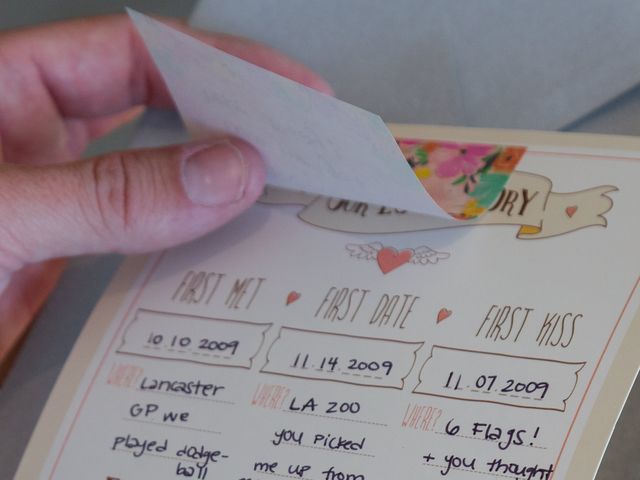 OUR
FIRST MET FIRST DATE FIRST KISS
10.10.2009 11.14.2009 11.07.2009
WHERE? Lancaster
GP we
played dodge-
ball
WHERE? LA ZOO
you picked
me up from
WHERE? 6 Flags!
+ you thought